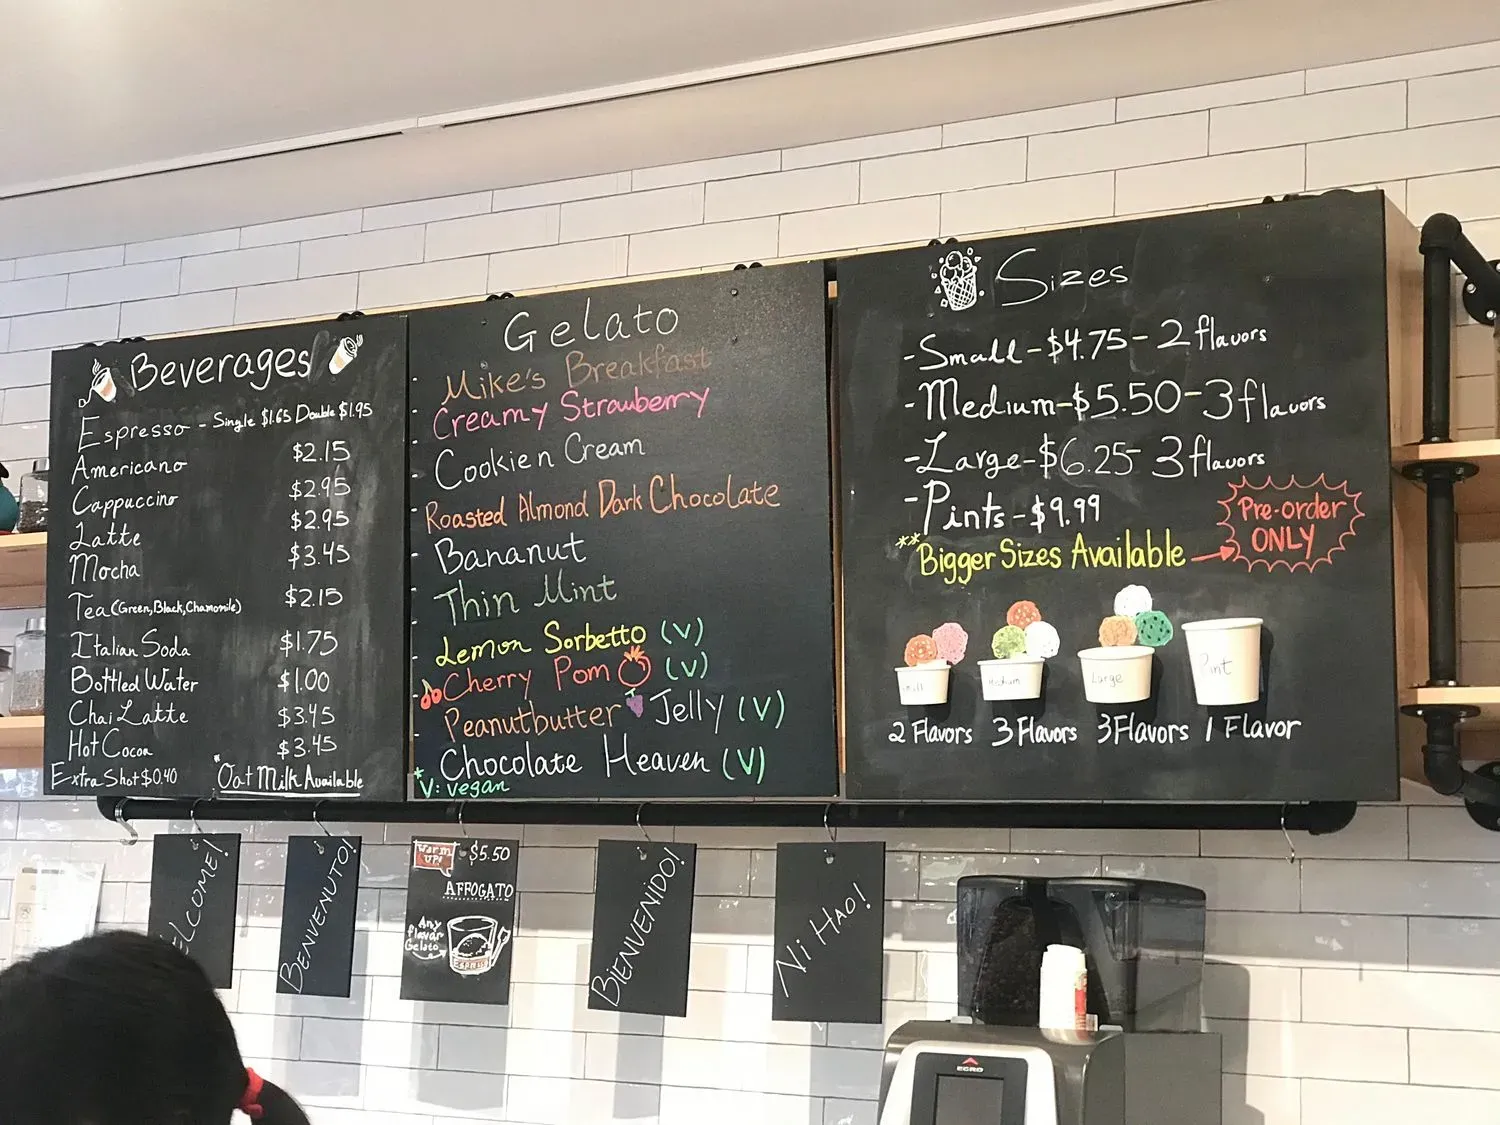 Beverages
Espresso - Single $1.65 Double $1.95
Americano $2.15
Cappuccino $2.95
Latte $2.95
Mocha $3.45
Tea (Green, Black, Chamomile) $2.15
Italian Soda $1.75
Bottled Water $1.00
Chai Latte $3.45
Hot Cocoa $3.45
Extra Shot $0.40
*Oat Milk Available
Gelato
- Mike's Breakfast
- Creamy Strawberry
- Cookie n Cream
- Roasted Almond Dark Chocolate
- Bananut
- Thin Mint
- Lemon Sorbetto (V)
- Cherry Pom (V)
- Peanutbutter Jelly (V)
- Chocolate Heaven (V)
*V: vegan
Sizes
- Small - $4.75 - 2 flavors
- Medium - $5.50 - 3 flavors
- Large - $6.25 - 3 flavors
- Pints - $9.99
**Bigger Sizes Available
Pre-order
ONLY
Small
Medium
Large
Pint
2 Flavors
3 Flavors
3 Flavors
1 Flavor
WELCOME!
BENVENUTO!
Warm
UP!
$5.50
AFFOGATO
Any
flavor
Gelato
ESPRESSO
BIENVENIDO!
Ni HAO!
EGRO